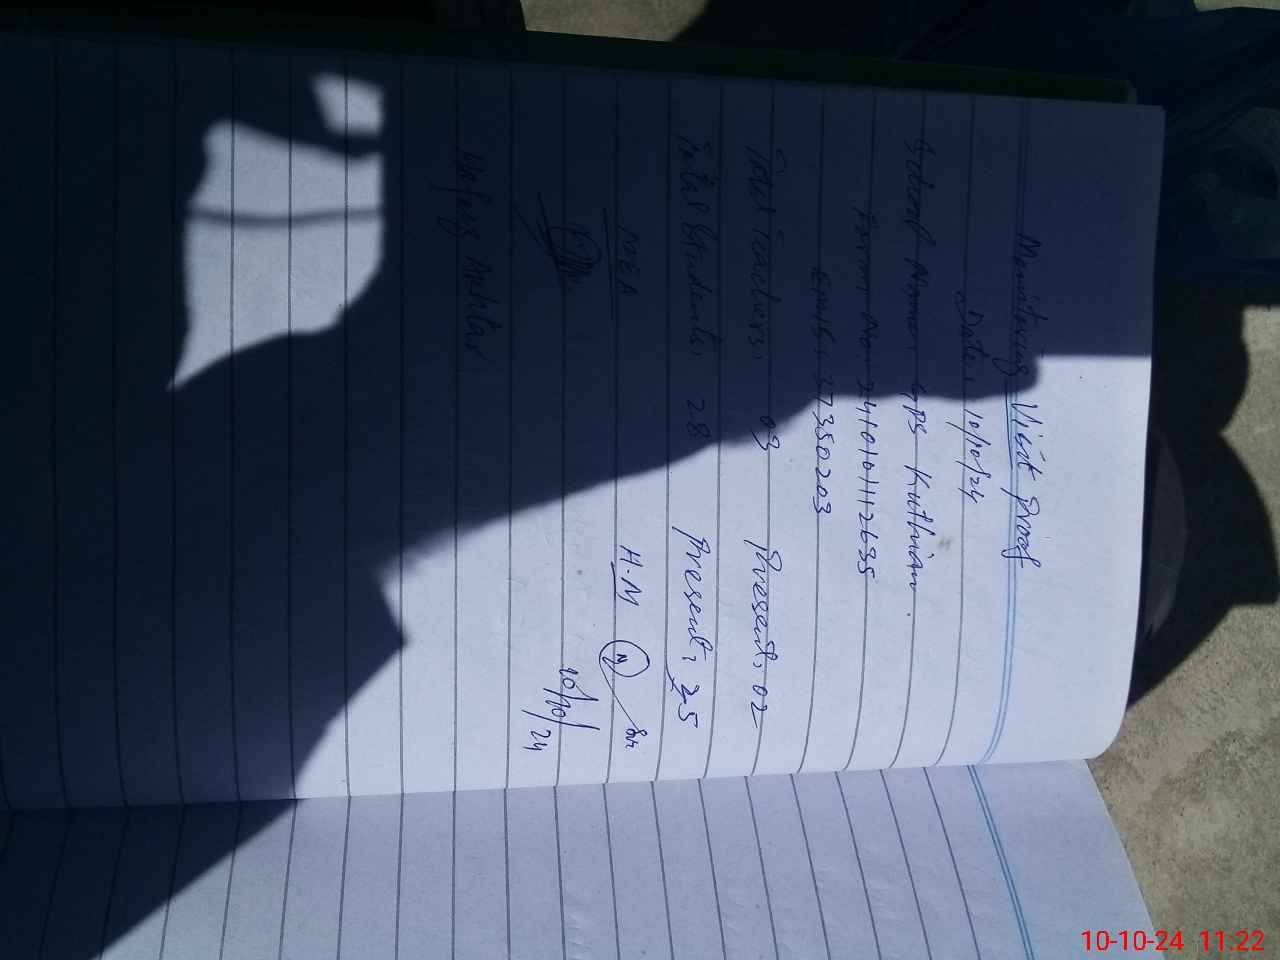 Monitoring Visit Proof
Date: 10/10/24
School Name: GPS Kuthian.
Form No: 2410101112635
EMIS: 27350203
Total Teachers: 03 Present: 02
Total Students: 28 Present: 25
MEA H.M
10/10/24
Hafeez Akhtar
10-10-24 11:22